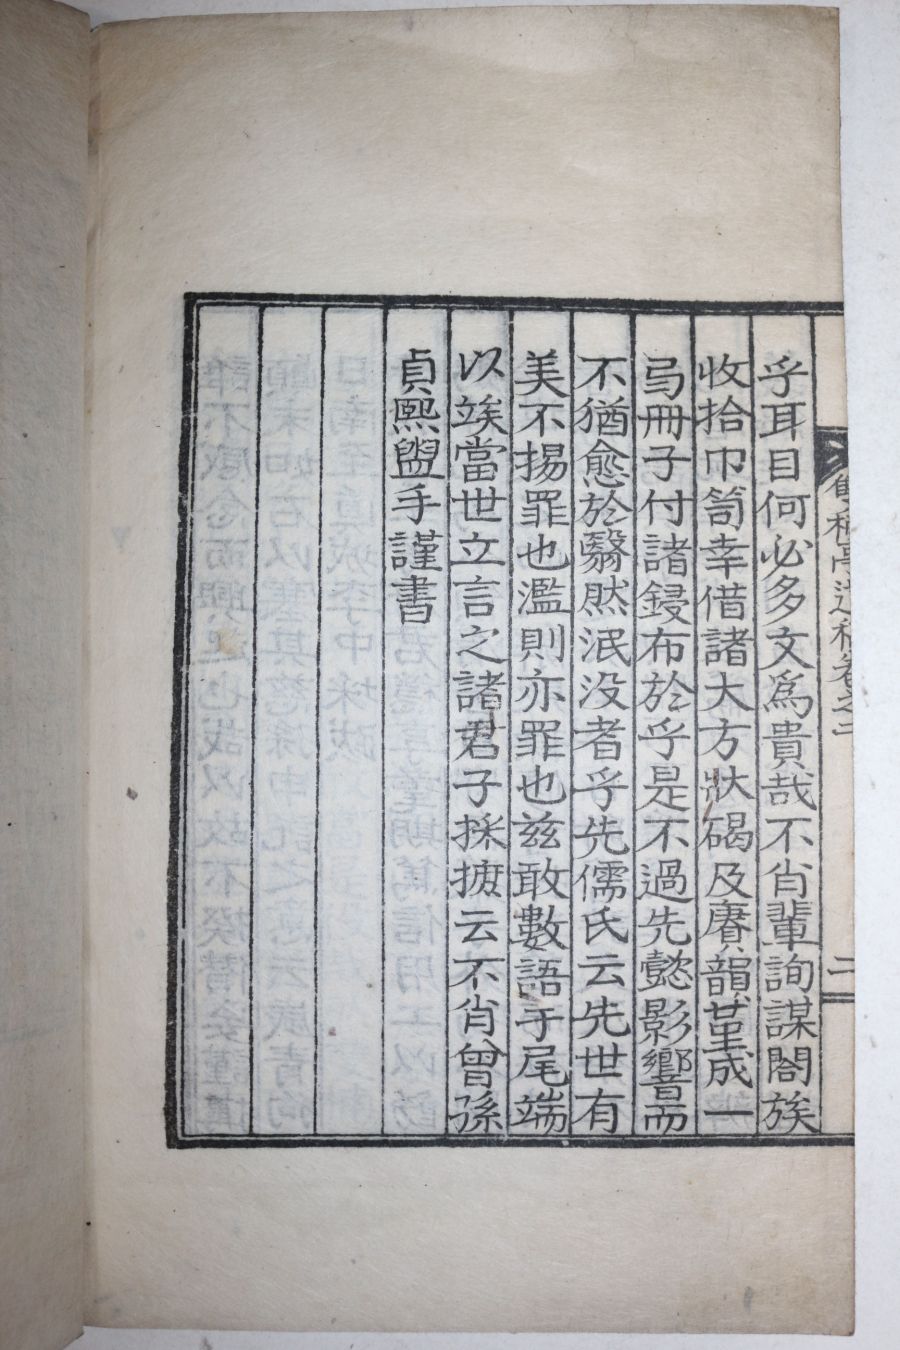 亭遺稿卷之二
二
乎耳目何必多文爲貴哉不肖輩詢謀閤族
收拾巾笥幸借諸大方狀碣及賡韻堇成一
弓冊子付諸鋟布於乎是不過先懿影響而
不猶愈於翳然泯沒者乎先儒氏云先世有
美不揚罪也濫則亦罪也玆敢數語于尾端
以竢當世立言之諸君子採摭云不肖曾孫
貞熙盥手謹書